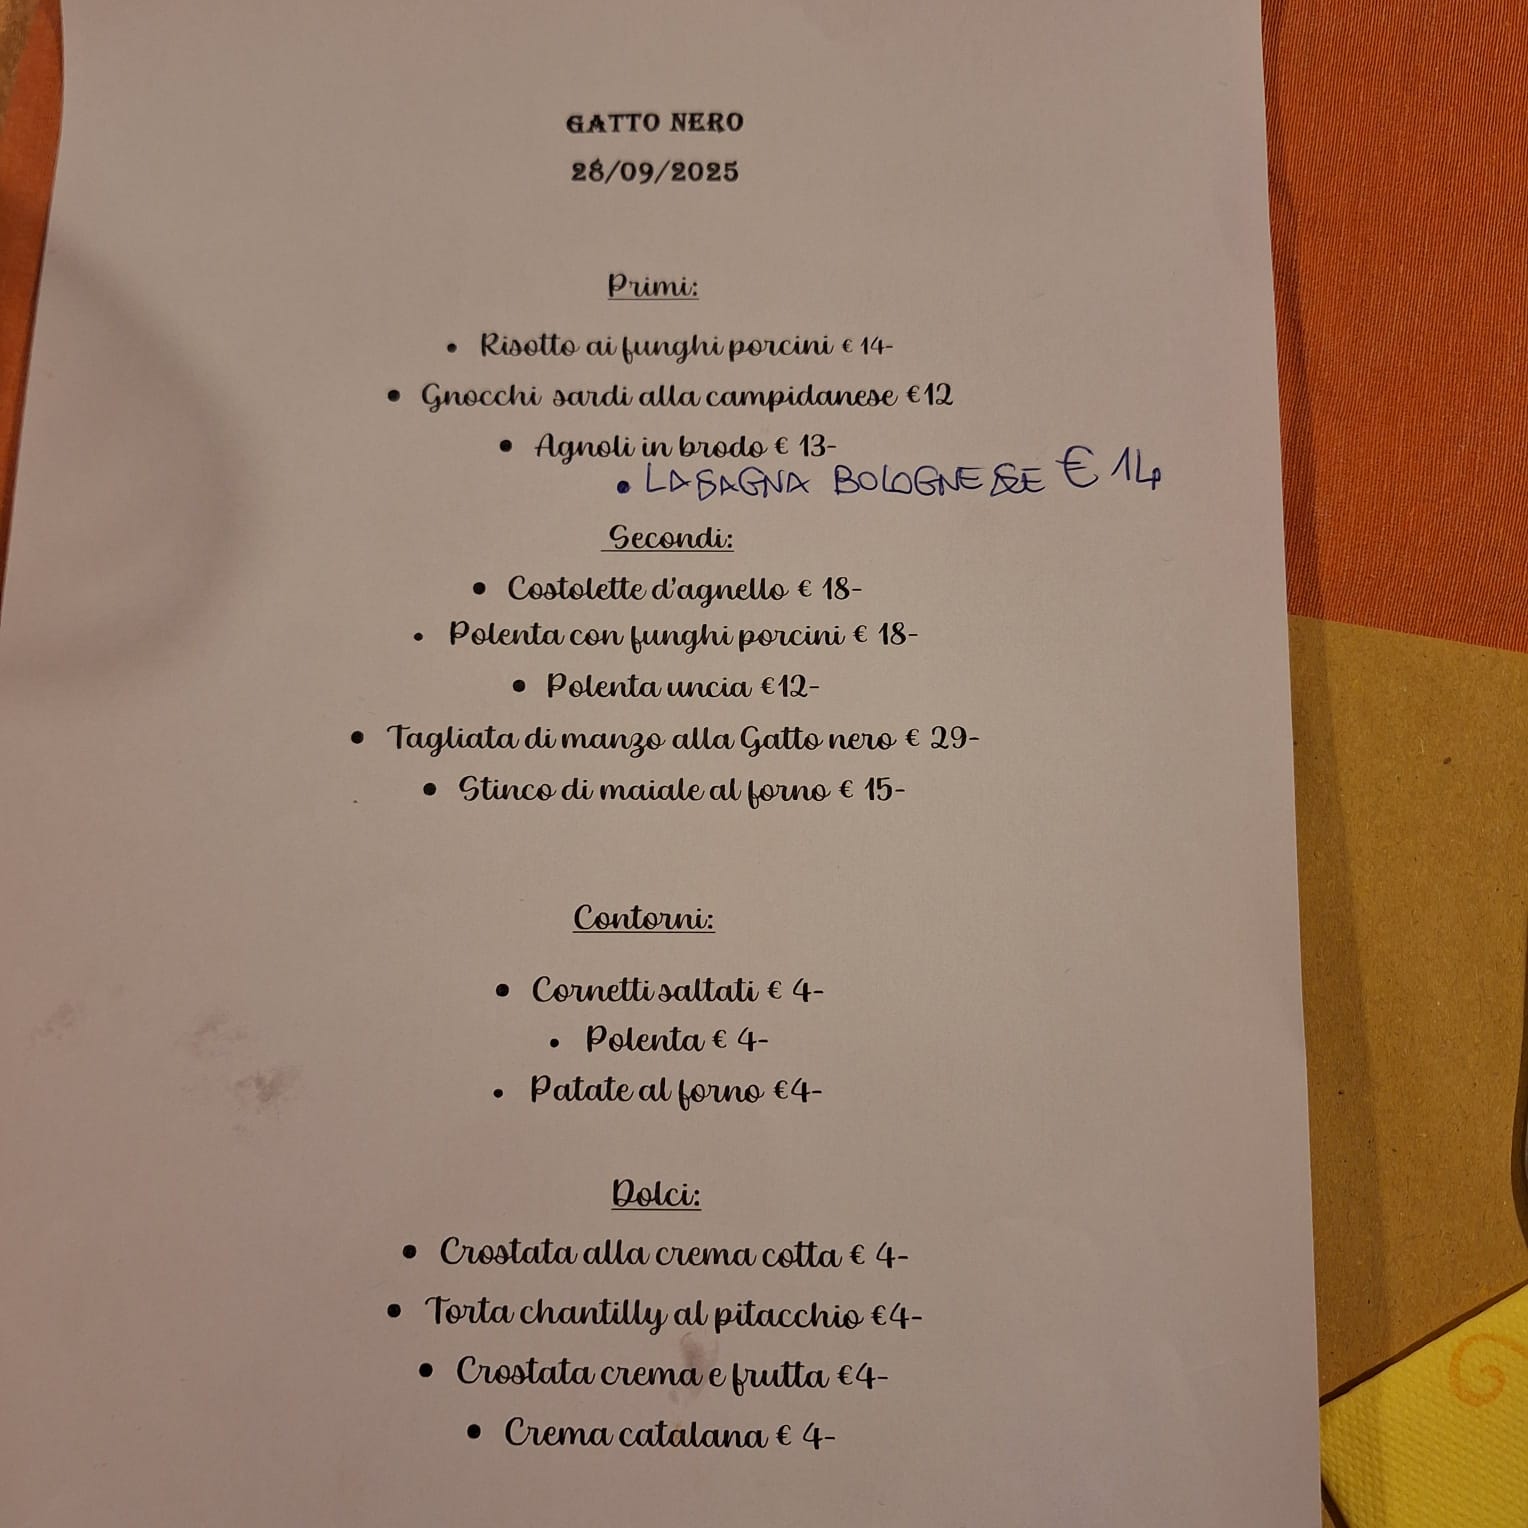 GATTO NERO
28/09/2025
Primi:
• Risotto ai funghi porcini € 14-
• Gnocchi sardi alla campidanese €12
• Agnoli in brodo € 13-
• LASAGNA BOLOGNESE € 14
Secondi:
• Costolette d'agnello € 18-
• Polenta con funghi porcini € 18-
• Polenta uncia €12-
• Tagliata di manzo alla Gatto nero € 29-
• Stinco di maiale al forno € 15-
Contorni:
• Cornetti saltati € 4-
• Polenta € 4-
• Patate al forno €4-
Dolci:
• Crostata alla crema cotta € 4-
• Torta chantilly al pitacchio €4-
• Crostata crema e frutta €4-
• Crema catalana € 4-